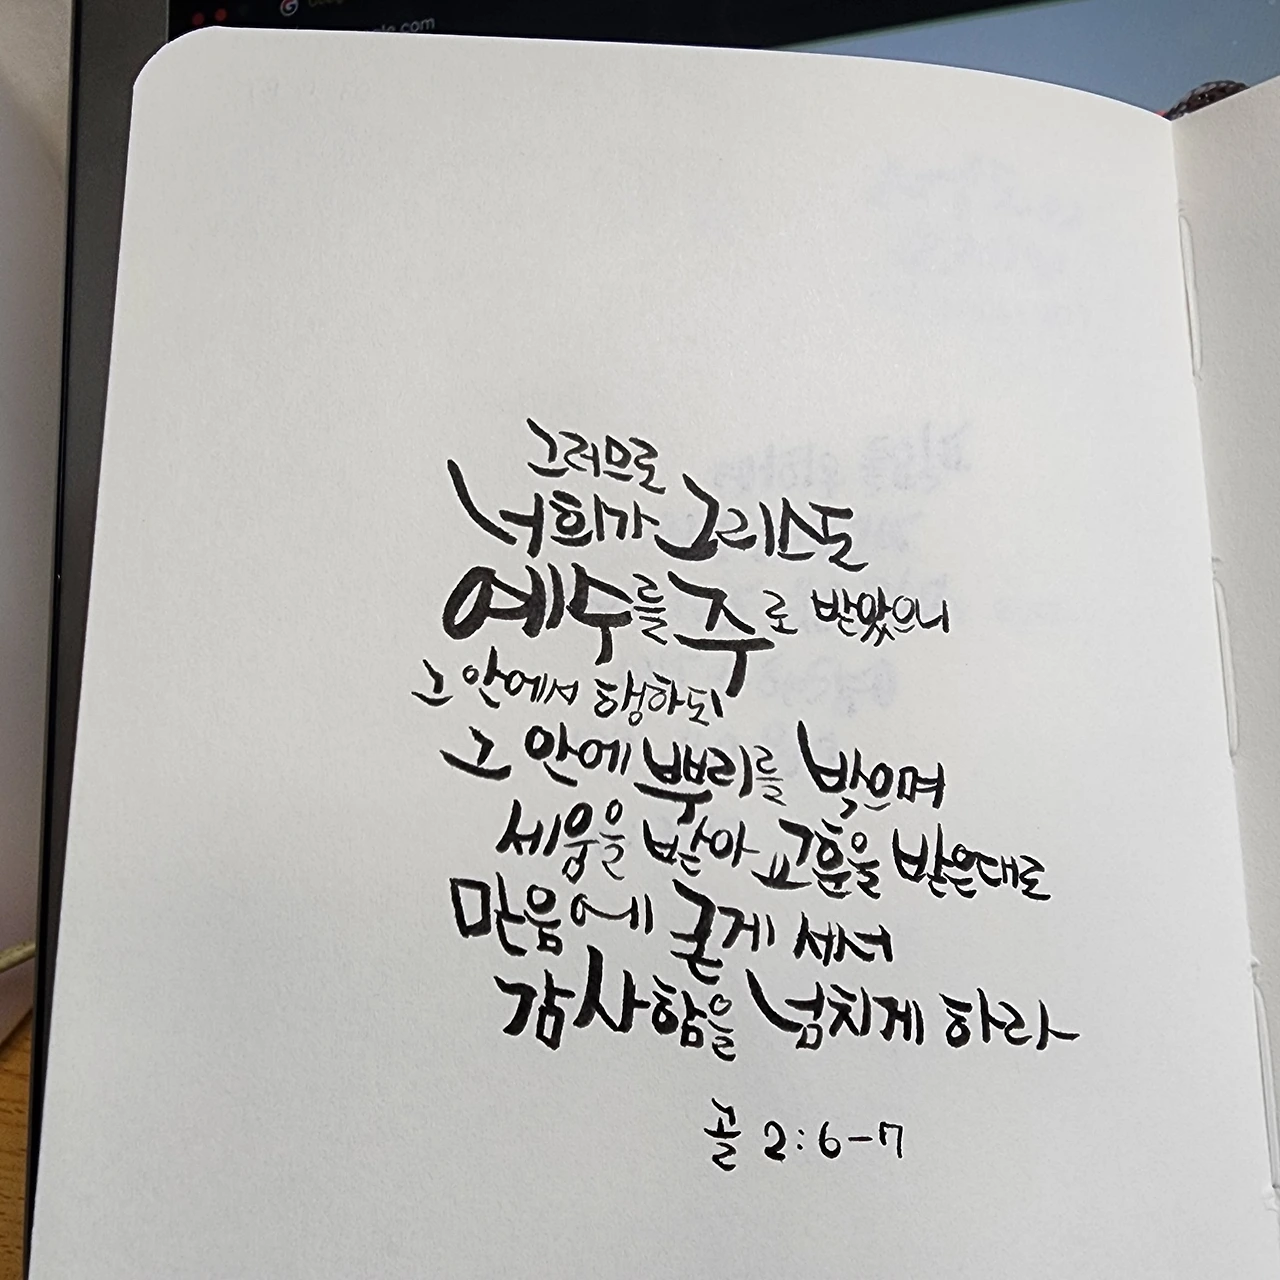 그러므로
너희가 그리스도
예수를 주로 받았으니
그 안에서 행하되
그 안에 뿌리를 박으며
세움을 받아 교훈을 받은대로
믿음에 굳게 서서
감사함을 넘치게 하라
골 2:6-7